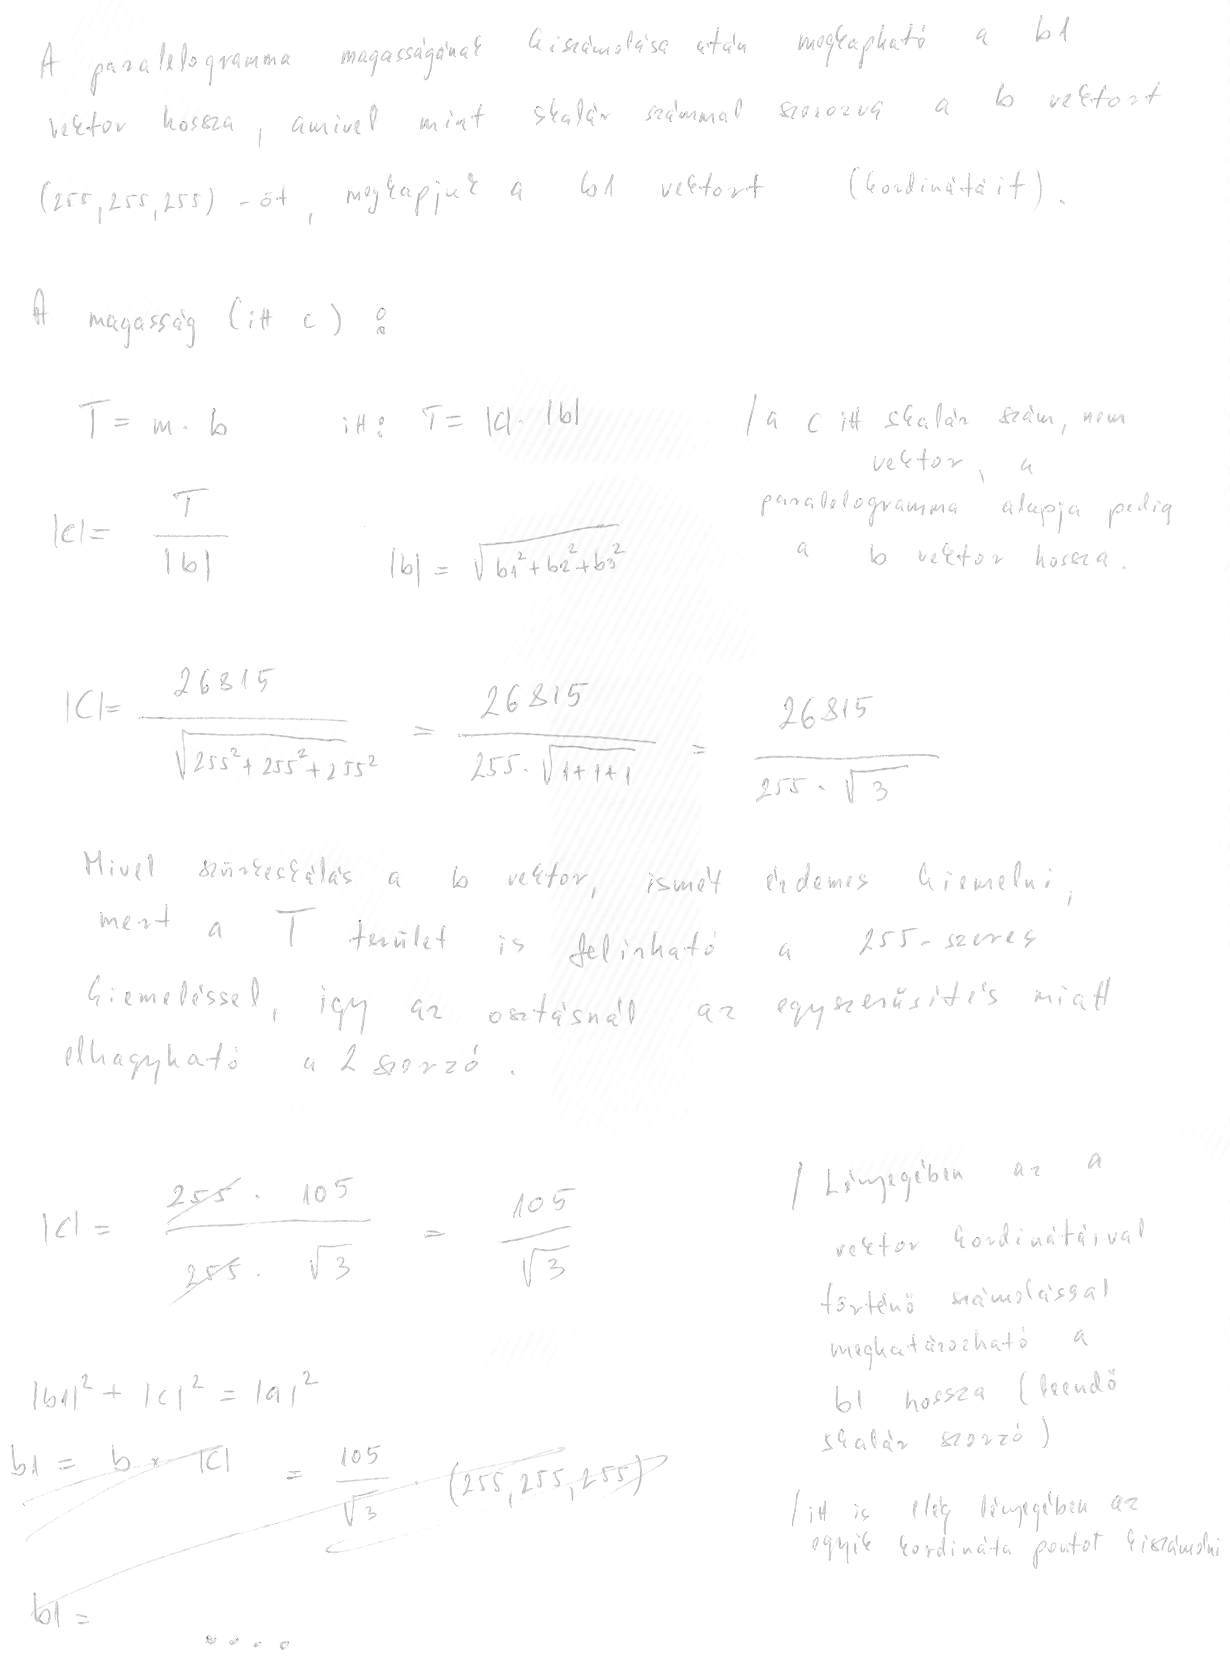 A paralelogramma magasságának kiszámolása után megkapható a b1
vektor hossza, amivel mint skalár számmal szorozva a b vektort
(255,255,255) -öt, megkapjuk a b1 vektort (kordinátáit).
A magasság (itt c) :
T = m · b itt: T = |c| · |b| / a c itt skalár szám, nem
vektor, a
|c| = T / |b| paralelogramma alapja pedig
|b| = √(b1² + b2² + b3²) a b vektor hossza.
|C| = 26815 / √(255² + 255² + 255²) = 26815 / (255 · √(1+1+1)) = 26815 / (255 · √3)
Mivel szürkeskálás a b vektor, ismét érdemes kiemelni,
mert a T terület is felírható a 255-szeres
kiemeléssel, így az osztásnál az egyszerűsítés miatt
elhagyható a 2 szorzó.
|c| = (255 · 105) / (255 · √3) = 105 / √3
/ Lényegében az a
vektor kordinátáival
történő számolással
meghatározható a
b1 hossza (leendő
skalár szorzó)
|b1|² + |c|² = |a|²
b1 = b × |c| = 105 / √3 · (255,255,255)
/ itt is elég lényegében az
egyik kordináta pontot kiszámolni
b1 =
....